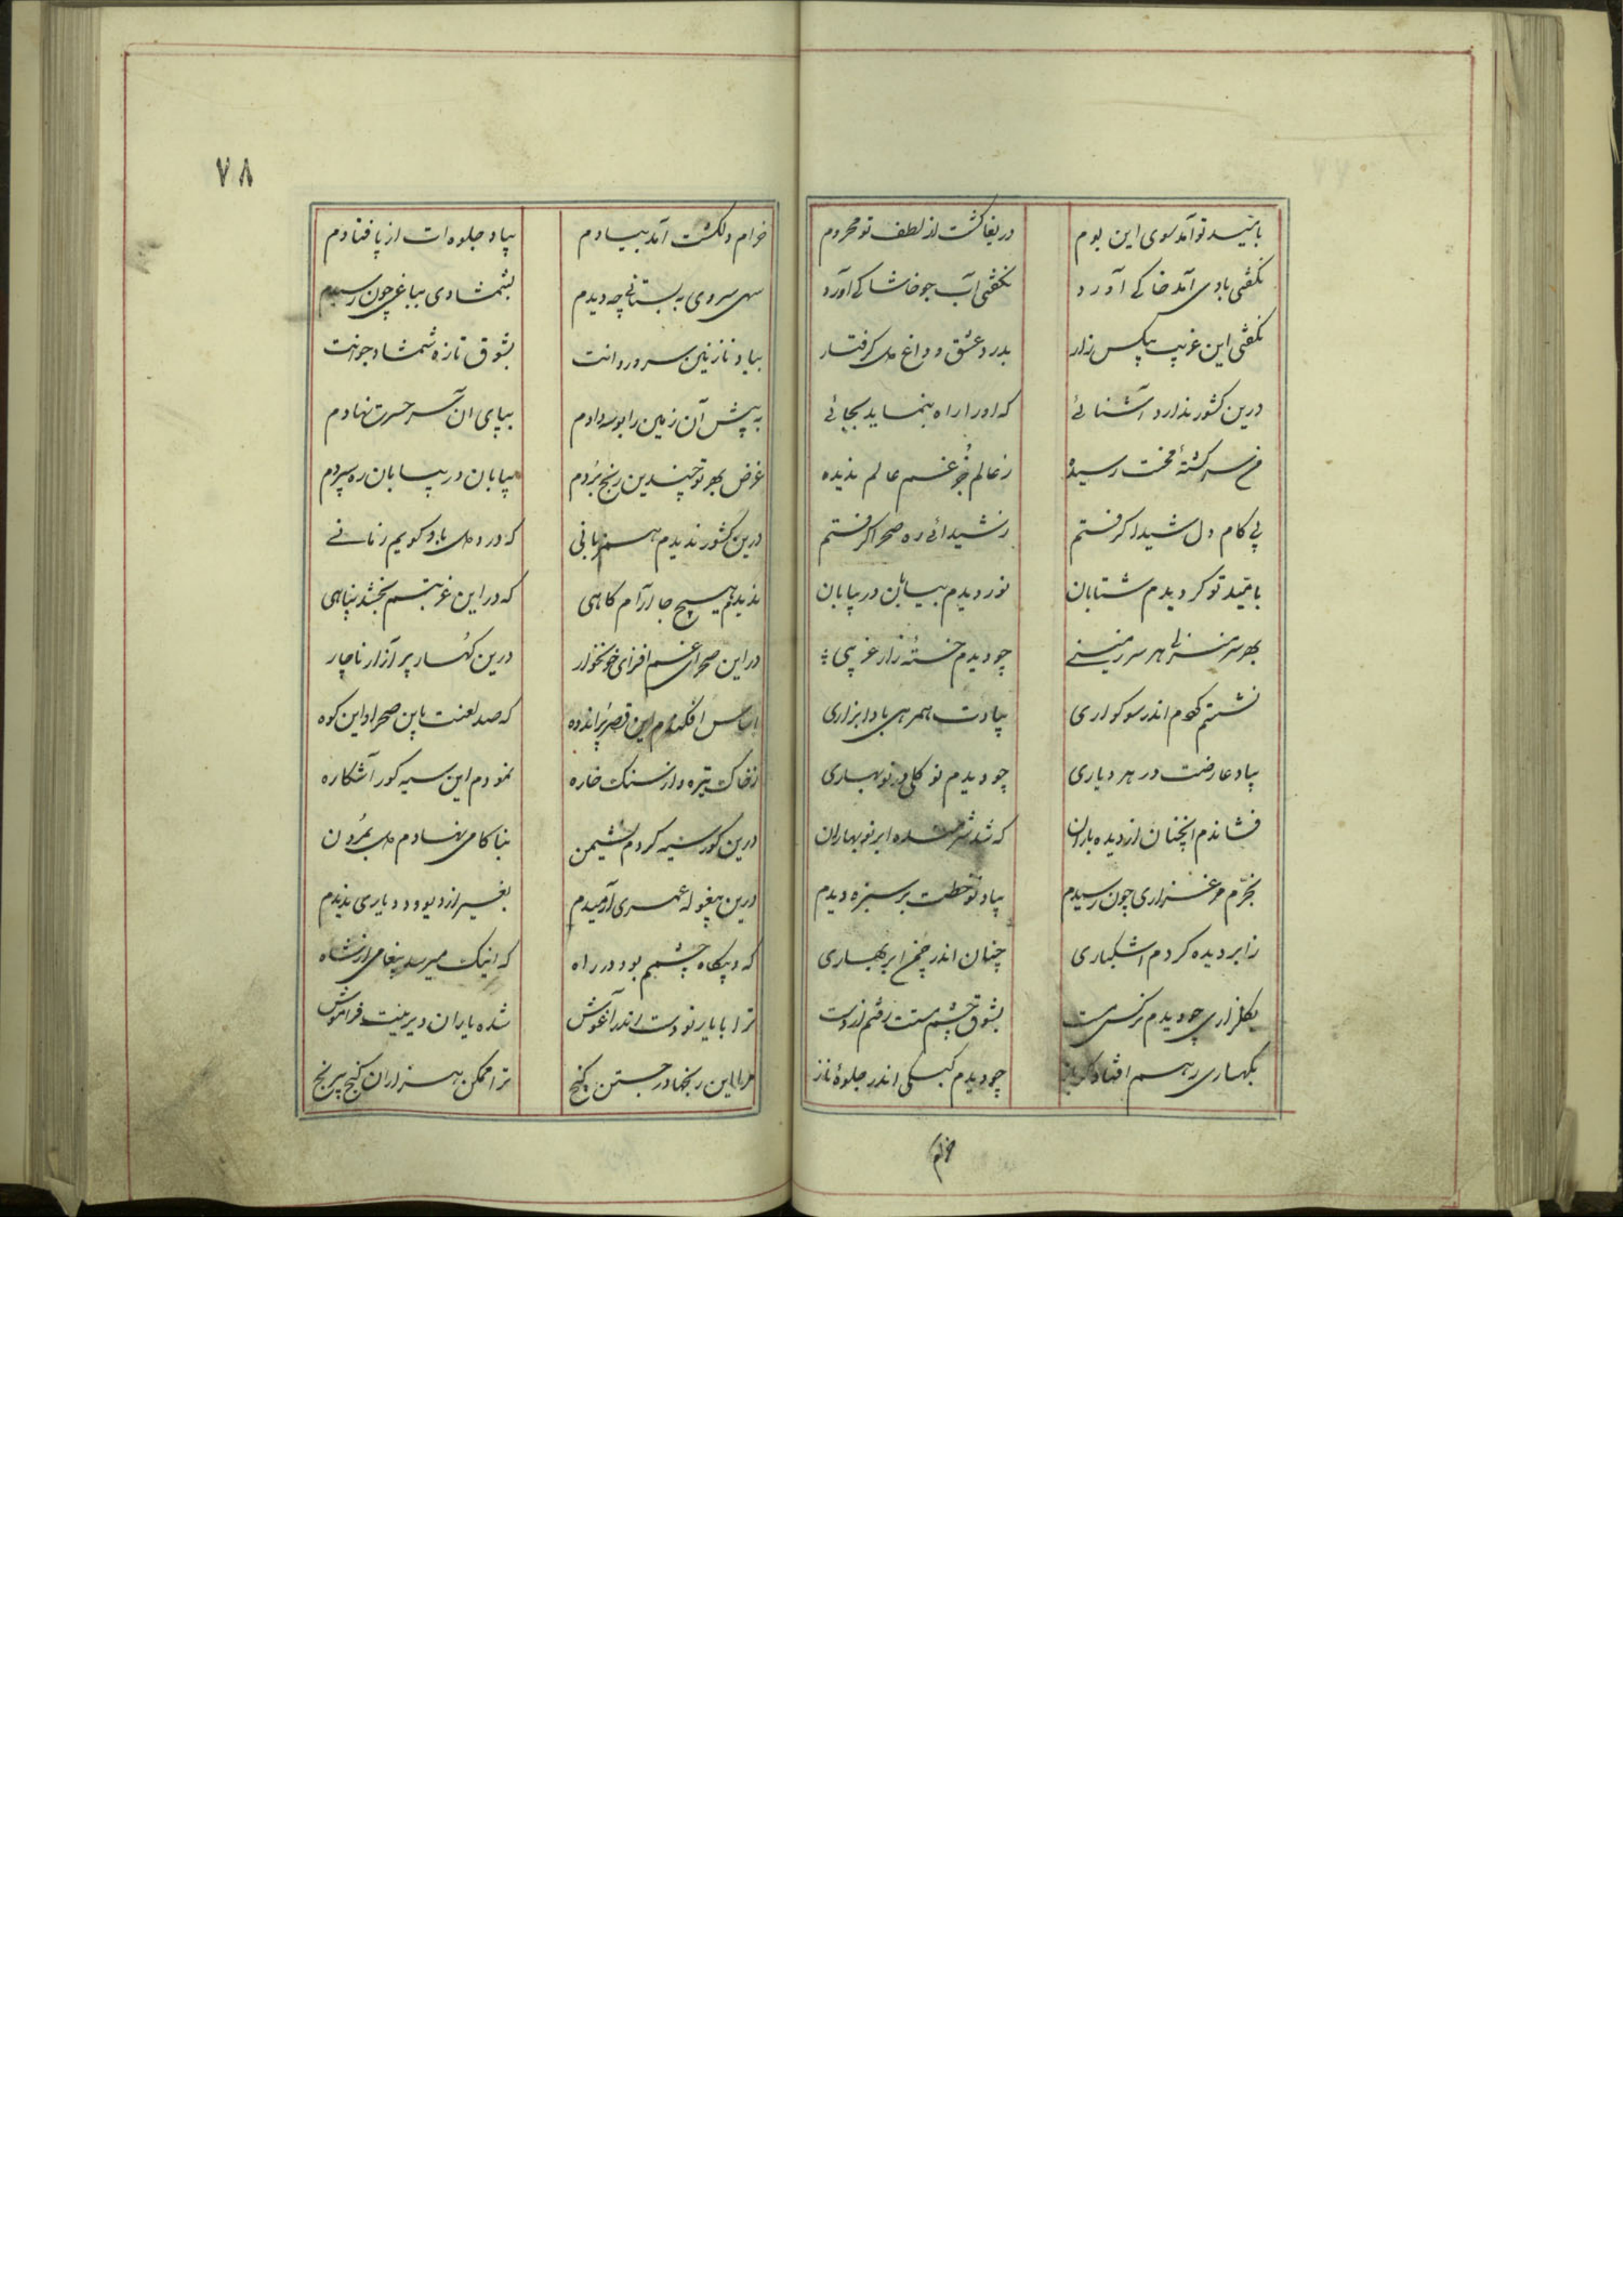 بامید تو آمد سوی این بوم
دریغا گشت از لطف تو محروم
نگفتی بادی آمد خاکی آورد
نگفتی آب جو خاشاکی آورد
نگفتی این غریب بیکس زار
بدرد عشق و داغ دل گرفتار
درین کشور ندارد آشنائی
که او را راه بنماید بجائی
سرگشتهٔ محنت رسیده
ز عالم جز غم عالم ندیده
پی کام دل شیدا گرفتم
ز شیدائی ره صحرا گرفتم
بامید تو گردیدم شتابان
نوردیدم بیابان در بیابان
بهر سر منزلی هر سرزمینی
چو دیدم خستهٔ زار غریبی
نشستم اندر سوکواری
بیادت همرهی با او بزاری
بیاد عارضت در هر دیاری
چو دیدم نو گلی در نوبهاری
فشاندم آنچنان از دیده باران
که شد شرمنده ابر نوبهاران
بخرم مرغزاری چون رسیدم
بیاد نوخطت بر سبزه دیدم
ز ابر دیده کردم اشکباری
چنان اندر چمن ابر بهاری
بگلزاری چو دیدم نرکس مست
بشوق چشم مستت رفتم از دست
بکهساری رهم افتاد
چو دیدم کبکی اندر جلوهٔ ناز
خرام
۷۸
خرام دلکشت آمد بیادم
بیاد جلوه‌ات از پا فتادم
سهی سروی به بستانی چه دیدم
بشمشادی بباغی چون رسیدم
بیاد نازنین سرو روانت
بشوق تازه شمشاد جوانت
به پیش آن زمین را بوسه دادم
بپای آن سر حسرت نهادم
غرض بهر تو چندین رنج بردم
بیابان در بیابان ره سپردم
درین کشور ندیدم همزبانی
که درد دل باو گویم زمانی
ندیدم هیچ جا آرام گاهی
که در این غربتم بخشد پناهی
در این صحرای غم افزای خونخوار
درین کهسار پر آزار ناچار
اساس افکندم این قصر پر اندوه
که صد لعنت باین صحرا و این کوه
ز خاک تیره و از سنگ خاره
نمودم این سیه گور آشکاره
درین گور سیه کردم نشیمن
بناکامی نهادم دل بمردن
درین بیغوله عمری آرمیدم
بغیر از دیو و دد یاری ندیدم
که و بیگاه چشمم بود در راه
که اینک میرسد پیغامی از شاه
ترا با یار نو دست اندر آغوش
شده یاران دیرینت فراموش
مرا این رنجها در جستن گنج
ترا ممکن هزاران گنج بی رنج